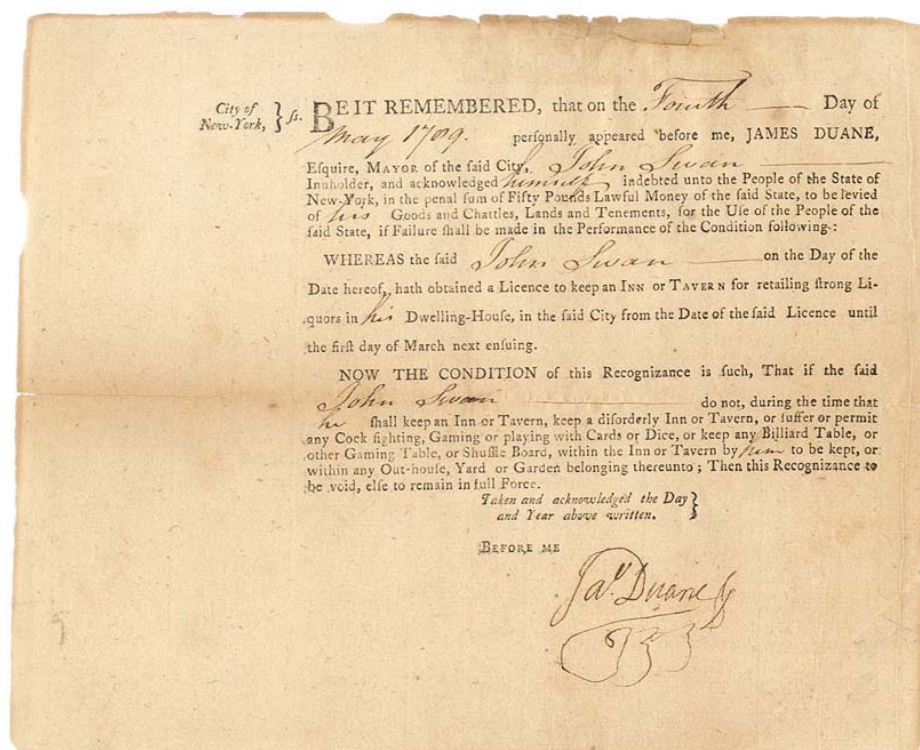 City of
New-York, } ſs. BE IT REMEMBERED, that on the Fourth Day of
May 1789. personally appeared before me, JAMES DUANE,
Eſquire, MAYOR of the ſaid City, John Swan
Innholder, and acknowledged himself indebted unto the People of the State of
New-York, in the penal ſum of Fifty Pounds Lawful Money of the ſaid State, to be levied
of his Goods and Chattles, Lands and Tenements, for the Uſe of the People of the
ſaid State, if Failure ſhall be made in the Performance of the Condition following:
WHEREAS the ſaid John Swan on the Day of the
Date hereof, hath obtained a Licence to keep an INN or TAVERN for retailing ſtrong Li-
quors in his Dwelling-Houſe, in the ſaid City from the Date of the ſaid Licence until
the firſt day of March next enſuing.
NOW THE CONDITION of this Recognizance is ſuch, That if the ſaid
John Swan do not, during the time that
he ſhall keep an Inn or Tavern, keep a diſorderly Inn or Tavern, or ſuffer or permit
any Cock fighting, Gaming or playing with Cards or Dice, or keep any Billiard Table, or
other Gaming Table, or Shuffle Board, within the Inn or Tavern by him to be kept, or
within any Out-houſe, Yard or Garden belonging thereunto; Then this Recognizance to
be void, elſe to remain in full Force.
Taken and acknowledged the Day }
and Year above written.
BEFORE ME
Jas. Duane